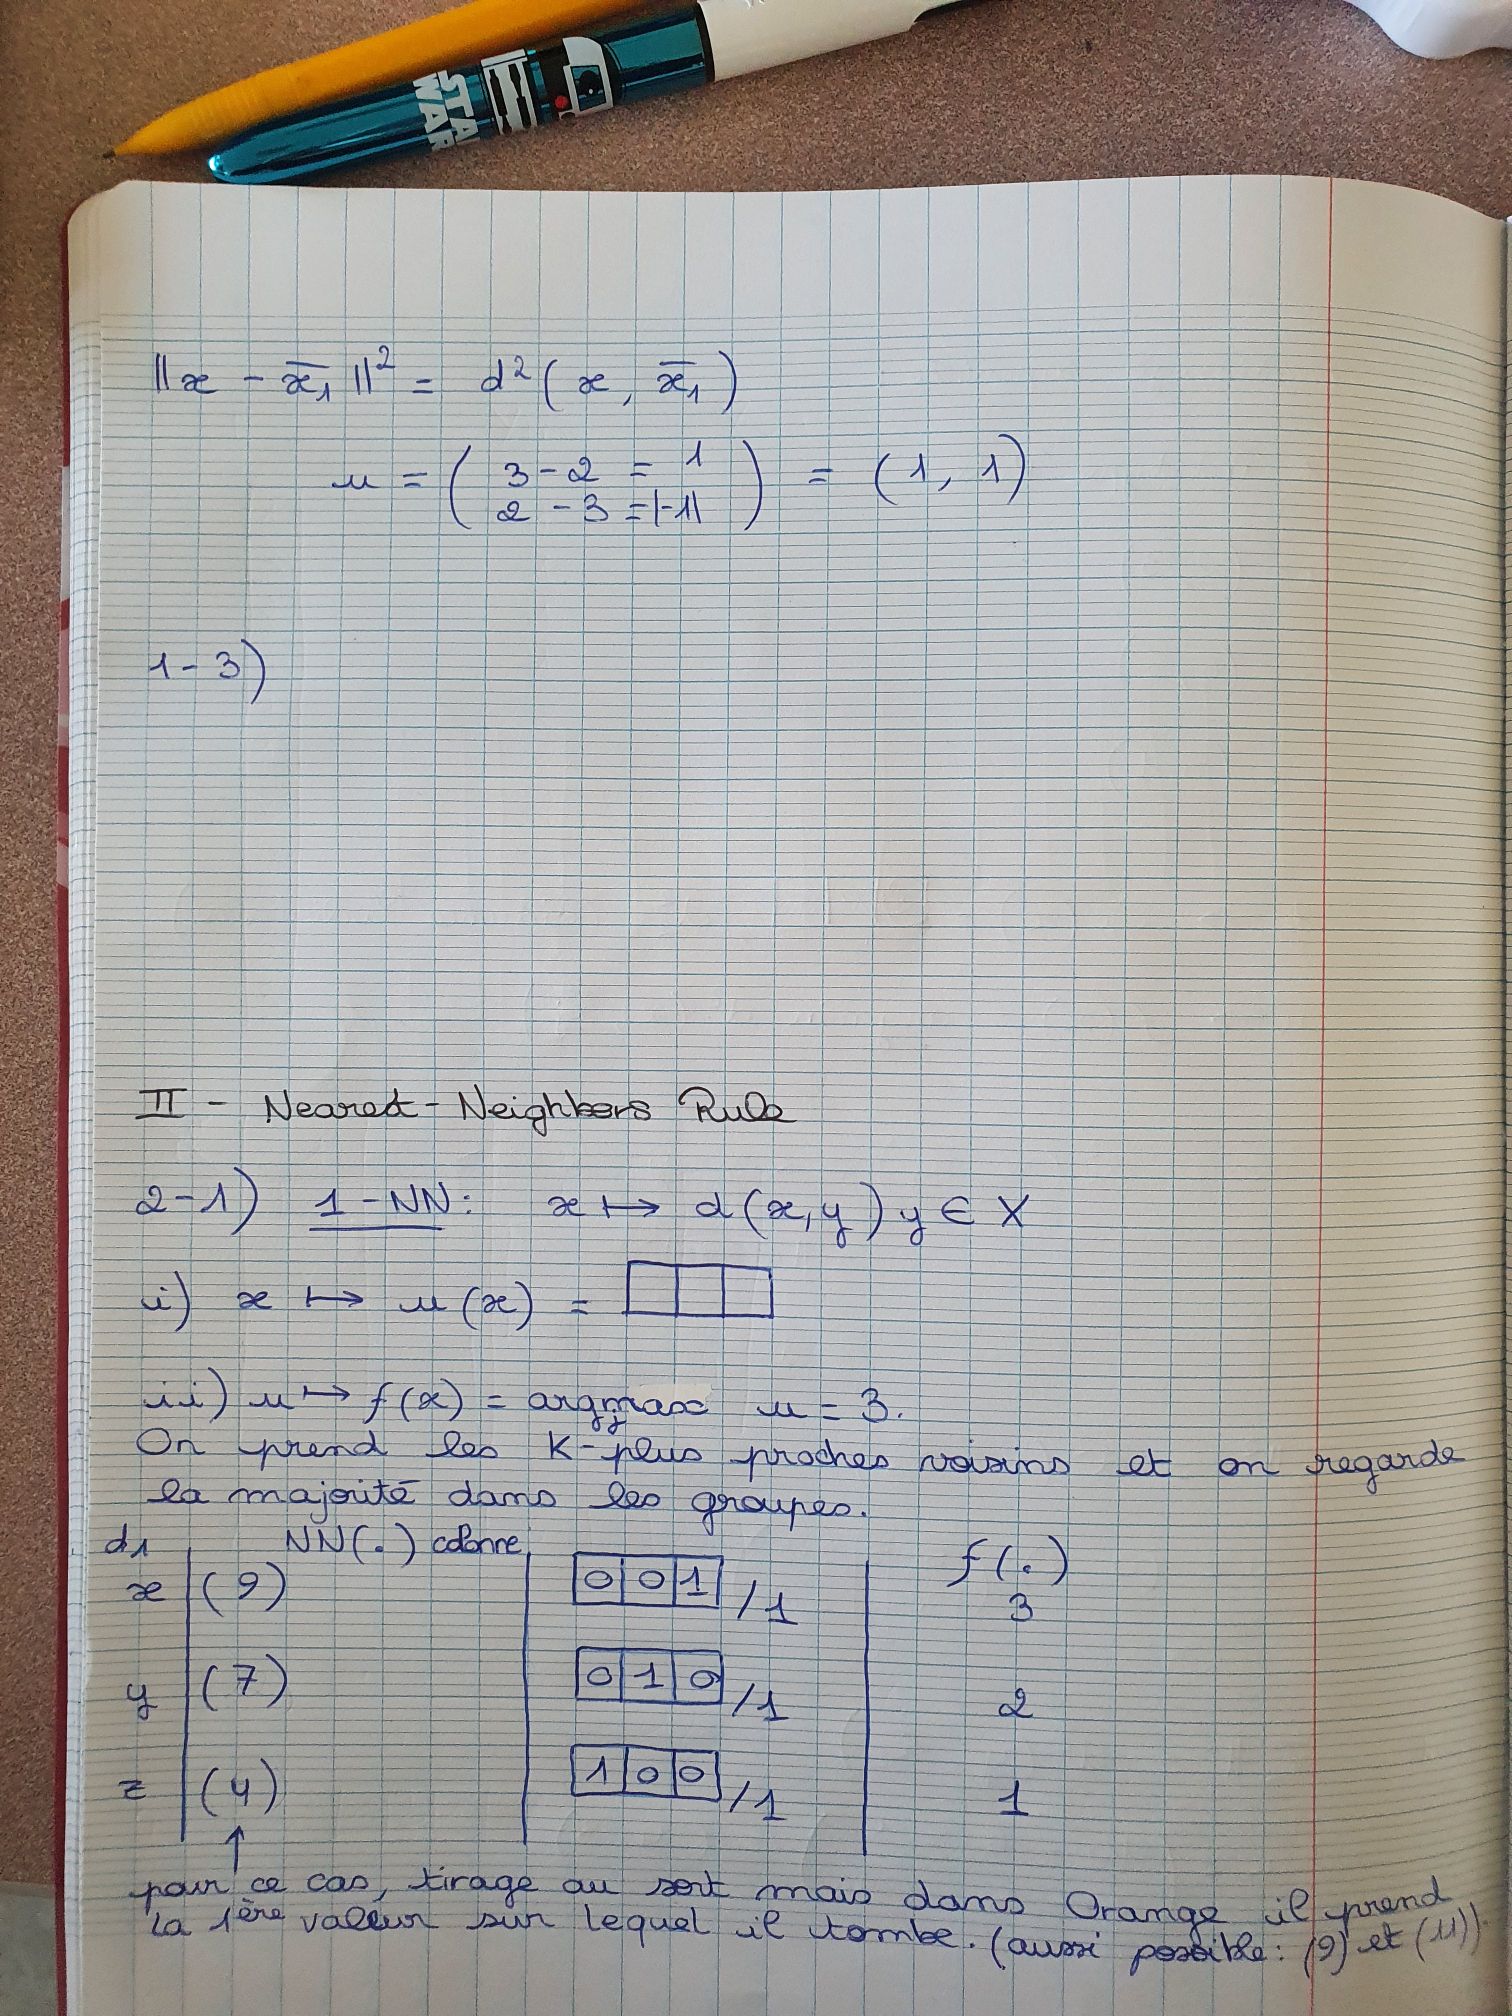 STAR
WAR
||x - x̄₁||² = d²(x, x̄₁)
u = ( 3 - 2 = 1
2 - 3 = |-1| ) = (1, 1)
1-3)
II - Nearest-Neighbors Rule
2-1) 1-NN: x ↦ d(x,y) y ∈ X
i) x ↦ u(x) =
ii) u ↦ f(x) = argmax_j u = 3.
On prend les K-plus proches voisins et on regarde
la majorité dans les groupes.
d1 NN(.) colonne f(.)
x (9) 0 0 1 /1 3
y (7) 0 1 0 /1 2
z (4) 1 0 0 /1 1
↑
pour ce cas, tirage au sort mais dans Orange il prend
la 1ère valeur sur lequel il tombe. (aussi possible: (9) et (11))